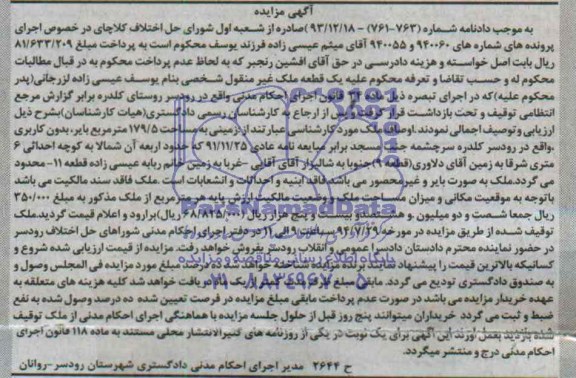 آگهی مزایده
به موجب دادنامه شماره (۷۶۳-۷۶۱) - ۹۳/۱۲/۱۸ صادره از شعبه اول شورای حل اختلاف کلاچای در خصوص اجرای
پرونده های شماره های ۹۴۰۰۶۰ و ۹۴۰۰۵۵ آقای میثم عیسی زاده فرزند یوسف محکوم است به پرداخت مبلغ ۸۱/۶۳۳/۲۰۹
ریال بابت اصل خواسته و هزینه دادرسی در حق آقای افشین رنجبر که به لحاظ عدم پرداخت محکوم به در قبال مطالبات
محکوم له و حسب تقاضا و تعرفه محکوم علیه یک قطعه ملک غیر منقول شخصی بنام یوسف عیسی زاده لزرجانی (پدر
محکوم علیه) که در اجرای تبصره ذیل قانون اجرای احکام مدنی واقع در رودسر روستای کلدره برابر گزارش مرجع
انتظامی توقیف و تحت بازداشت قرار گرفته پس از ارجاع به کارشناس رسمی دادگستری (هیات کارشناسان) بشرح ذیل
ارزیابی و توصیف اجمالی نمودند. اوصاف ملک مورد کارشناسی عبارتند از زمینی به مساحت ۱۷۹/۵ مترمربع بایر، بدون کاربری
،واقع در رودسر کلدره سرچشمه جنب مسجد برابر مبایعه نامه عادی ۹۱/۱۱/۲۵ که حدود اربعه آن شمالا به کوچه احداثی ۶
متری شرقا به زمین آقای دلاوری (قطعه ۹) جنوبا به شالیزار آقای آقایی -غربا به زمین خانم ربابه عیسی زاده قطعه ۱۱- محدود
می گردد. ملک به صورت بایر و غیر محصور می باشد فاقد ابنیه و احداثات و انشعابات است .ملک فاقد سند مالکیت می باشد
باتوجه به موقعیت مکانی و میزان مساحت و وضعیت مالکیت ارزش پایه هر مترمربع از ملک مذکور به مبلغ ۳۵۰/۰۰۰
ریال جمعا شصت و دو میلیون و هشتصد و بیست و پنج هزار ریال ریال) برآورد و اعلام قیمت گردید. ملک
توقیف شده از طریق مزایده در مورخه ۹۴/۷/۲۹ ساعت ۹ الی ۱۱ در دفتر اجرای احکام مدنی شوراهای حل اختلاف رودسر
در حضور نماینده محترم دادستان دادسرا عمومی و انقلاب رودسر بفروش خواهد رفت. مزایده از قیمت ارزیابی شده شروع و
کسانیکه بالاترین قیمت را پیشنهاد نمایند برنده مزایده شناخته خواهد شد ده درصد مبلغ مورد مزایده فی المجلس وصول و
به صندوق دادگستری تودیع می گردد. مابقی مبلغ ماه دریافت خواهد شد کلیه هزینه های متعلقه به
عهده خریدار مزایده می باشد در صورت عدم پرداخت مابقی مبلغ مزایده در فرصت تعیین شده ده درصد وصول شده به نفع
ضبط و ثبت می گردد خریداران میتوانند پنج روز قبل از حلول جلسه مزایده با هماهنگی اجرای احکام مدنی از ملک توقیف
شده بازدید بعمل آورند این آگهی برای یک نوبت در یکی از روزنامه های کثیرالانتشار محلی مستند به ماده ۱۱۸ قانون اجرای
احکام مدنی درج و منتشر میگردد.
ح ۲۶۴۴ مدیر اجرای احکام مدنی دادگستری شهرستان رودسر-روانان
ParsNamadData
پایگاه اطلاع رسانی مناقصه و مزایده
۰۲۱-۸۸۳۴۹۶۷۰-۵